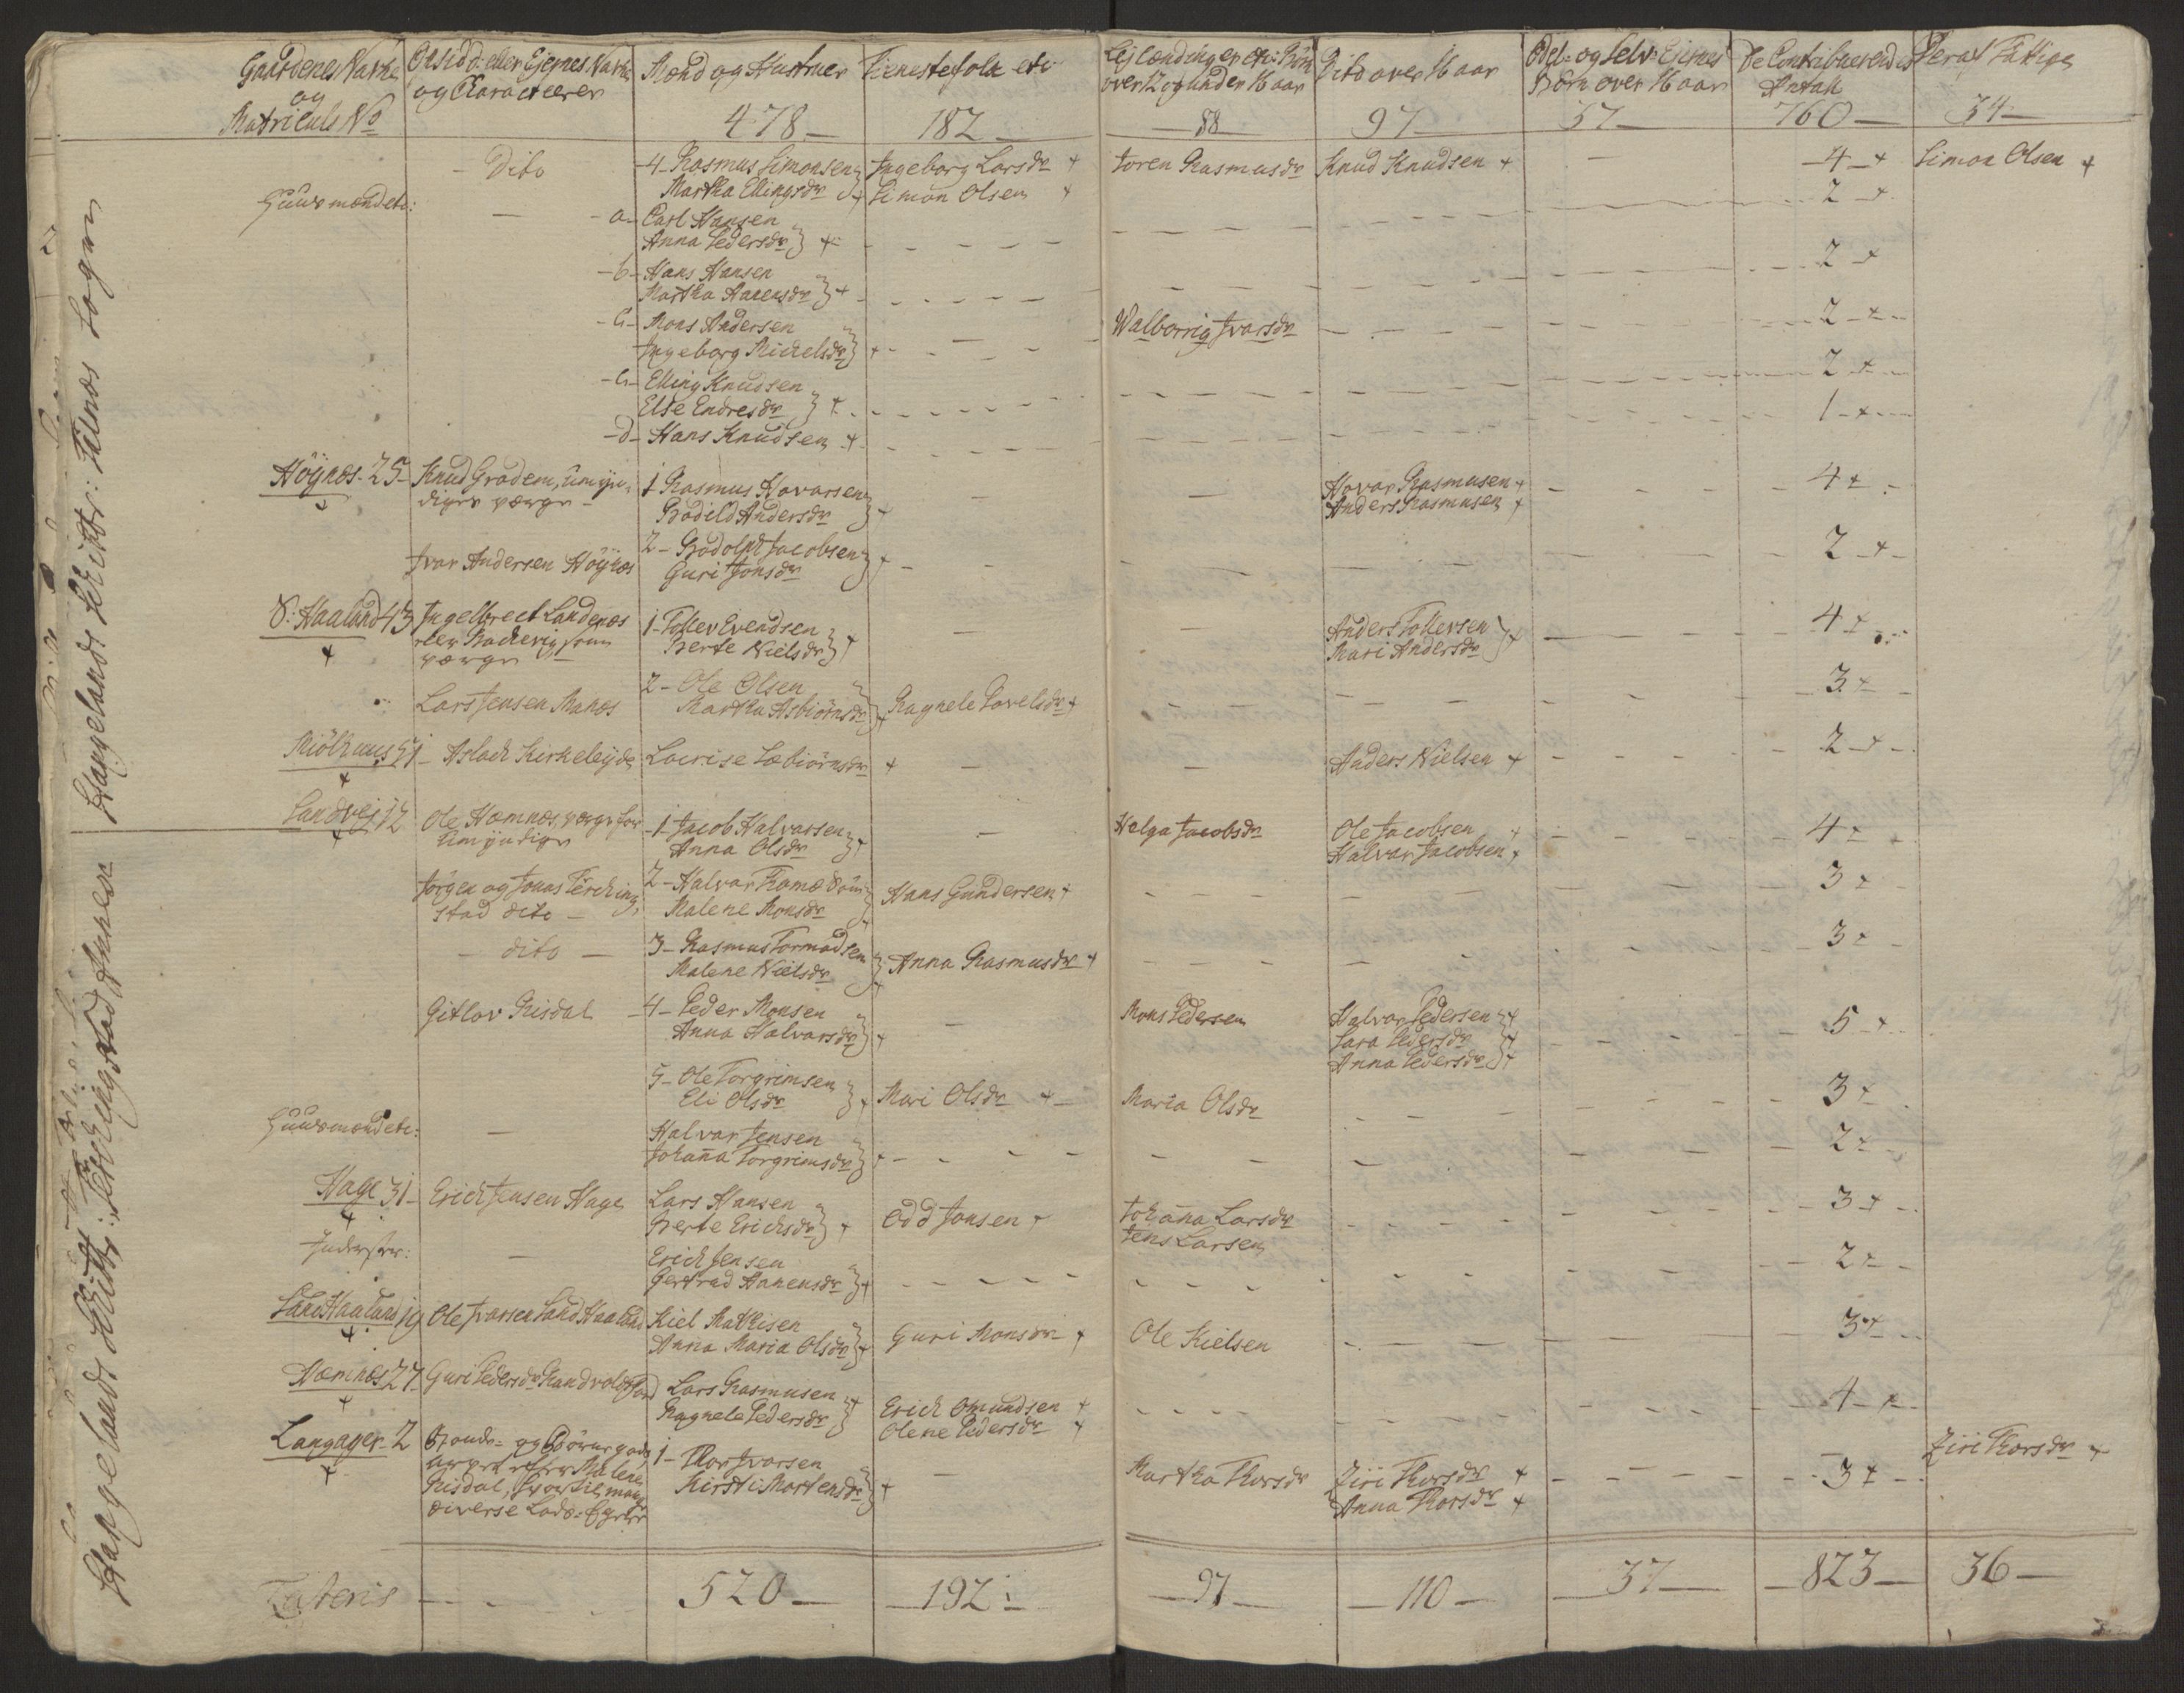 Gaardenes Nafne
og
Matriculs No
Opsidd: eller Ejernes Nafne
og Characteerer
Mænd og Hustruer
478 —
Tienestefolk etc:
182 —
Lejlændinger etc: Børn
over 12 og under 16 aar
88
Dito over 16 aar
97 —
Odel- og Selv-Ejernes
Børn over 16 aar
37 —
De Contribuerendes
Antall
760 —
Deraf Fattige
34 —
Hangelands Skibbr: Tilnæs Sogn
Hangelands Skibbr: Ferchingstad Annex
— Dito
4- Rasmus Simonsen
Martha Ellingsdr
Ingeborg Larsdr +
Simon Olsen +
Toren Rasmusdr
Knud Knudsen +
—
4 - +
Simon Olsen +
Huusmænd etc: —
- a- Carl Hansen
Anna Pedersdr } +
2 - +
- b- Hans Hansen
Martha Aanensdr } +
2 - +
- c- Mons Andersen
Ingeborg Michelsdr } +
Walborrig Ivarsdr
2 - +
- c- Elling Knudsen
Else Endresdr } +
2 - +
- d- Hans Knudsen +
1 - +
Höynæs - 25 -
+
Knud Gradem, umyn-
diges værge -
1 Rasmus Havarsen
Bodild Andersdr } +
Havar Rasmusen +
Anders Rasmusen +
4 +
Ivar Andersen Höynæs
2 - Rodolph Jacobsen
Guri Jonsdr } +
2 - +
S: Haaland 43
+
Ingelbrect Sandenæs
eller Bachevig som
værge —
1- Tollev Evendsen
Berte Nielsdr } +
Anders Tollevsen
Mari Andersdr } +
4 +
Lars Jensen Manæs
2 - Ole Olsen
Martha Asbiörnsdr } +
Ragnele Povelsdr +
3 +
Miölhuus 51 -
+
Aslach Kirkeleyde
Lovrise Læbiörnsdr +
Anders Nielsen +
2 - +
Sandvej 12
+
Ole Hæmnæs, værge for
Umyndige
- 1 - Jacob Halvarsen
Anna Olsdr } +
Helga Jacobsdr
Ole Jacobsen +
Halvar Jacobsen +
4 +
Jörgen og Jonas Ferching,
stad dito —
2 - Halvar Thomæsön
Malene Monsdr
Hans Gundersen +
3 +
— dito —
3 - Rasmus Tormodsen
Malene Nielsdr } +
Anna Rasmusdr +
3 +
Gitlov Risdal
4 - Peder Monsen
Anna Halvarsdr } +
Mons Pedersen
Halvar Pedersen } +
Sara Pedersdr } +
Anna Pedersdr } +
5 - +
5 - Ole Torgrimsen
Eli Olsdr } +
Mari Olsdr +
Maria Olsdr
3 +
Huusmænd etc: —
Halvar Jensen
Johaña Torgrimsdr } +
2 +
Hage 31 -
+
Erich Jensen Hage
Lars Hansen
Berte Erichsdr } +
Odd Jonsen +
Johaña Larsdr
Jens Larsen
3 - +
Inderster: —
Erich Jensen
Gertrud Aanensdr } +
2 +
Sand Haaland 19
+
Ole Ivarsen Sand Haaland
Kiel Mathisen
Anna Maria Olsdr } +
Guri Monsdr +
Ole Kielsen
3 +
Hæmnæs 27 -
+
Guri Pedersdr
Lars Rasmusen
Ragnele Pedersdr } +
Erich Omundsen +
Olene Pedersdr +
4 - +
Langager - 2
+
Malene
Risdal,
diverse Lods-Ejere
1 - Thor Ivarsen
Kirsti Mortensdr } +
Martha Thorsdr
Ziri Thorsdr +
Anna Thorsdr +
3 +
Ziri Thorsdr +
Lateris
520 —
— 192 —
— 97 —
— 110 —
— 37 —
— 823 —
36 —